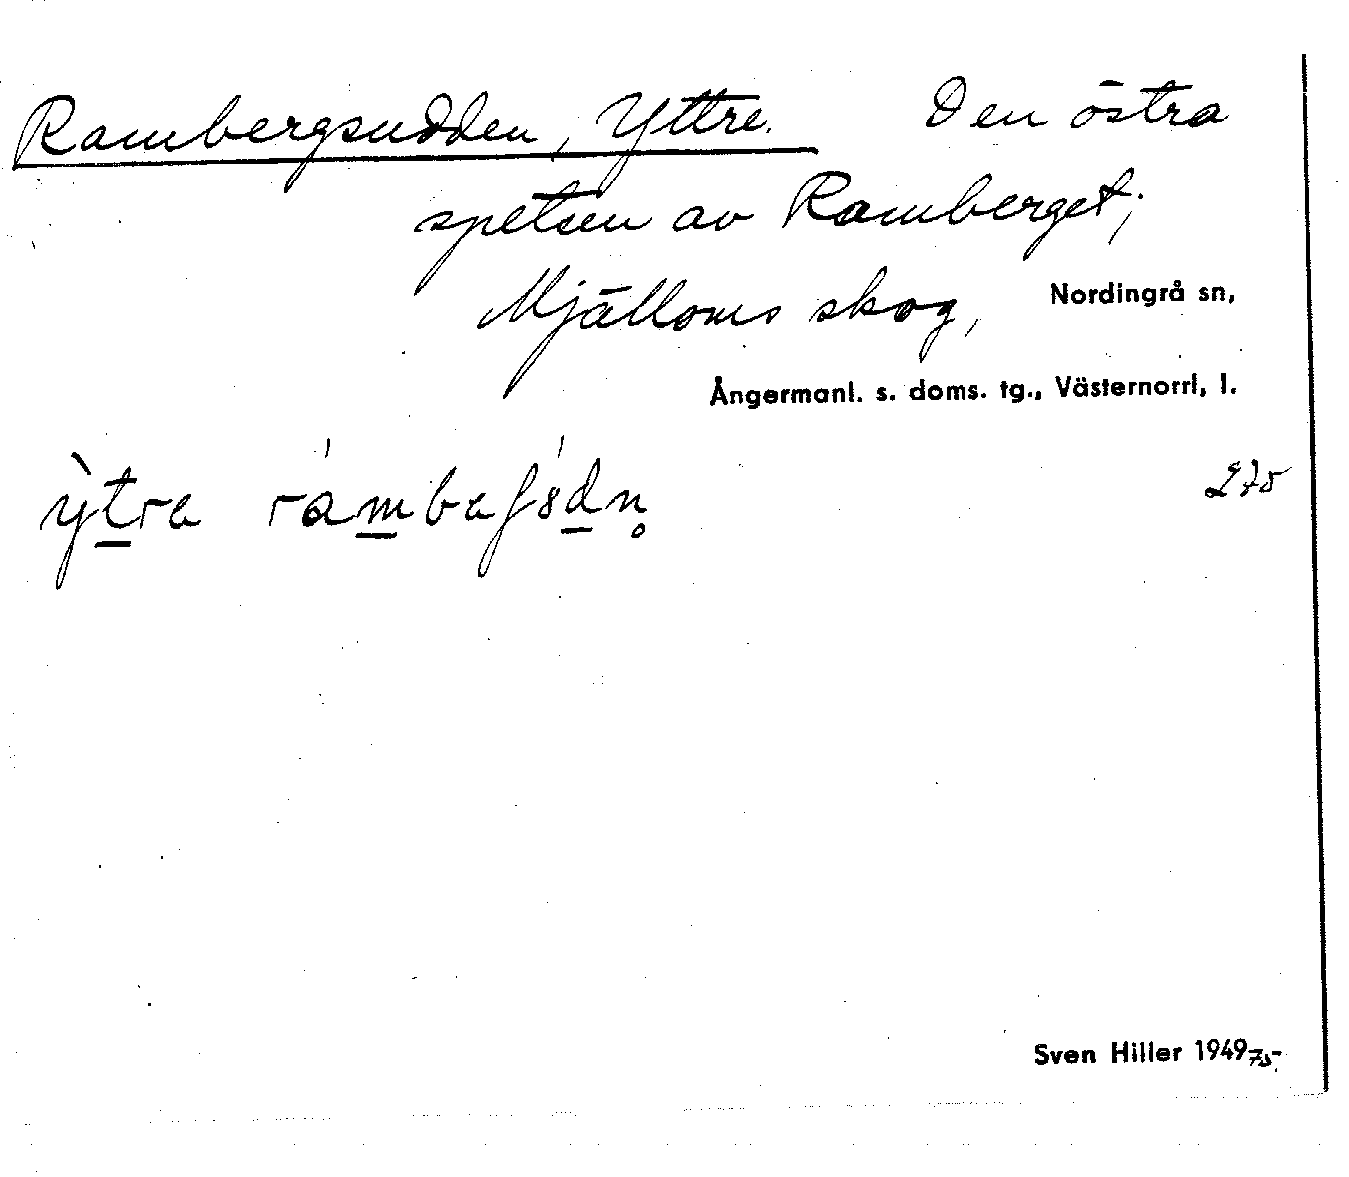 Rambergsudden, Yttre. Den östra
spetsen av Ramberget;
Mjälloms skog, Nordingrå sn,
Ångermanl. s. doms. tg., Västernorrl, l.
275
Sven Hiller 1949